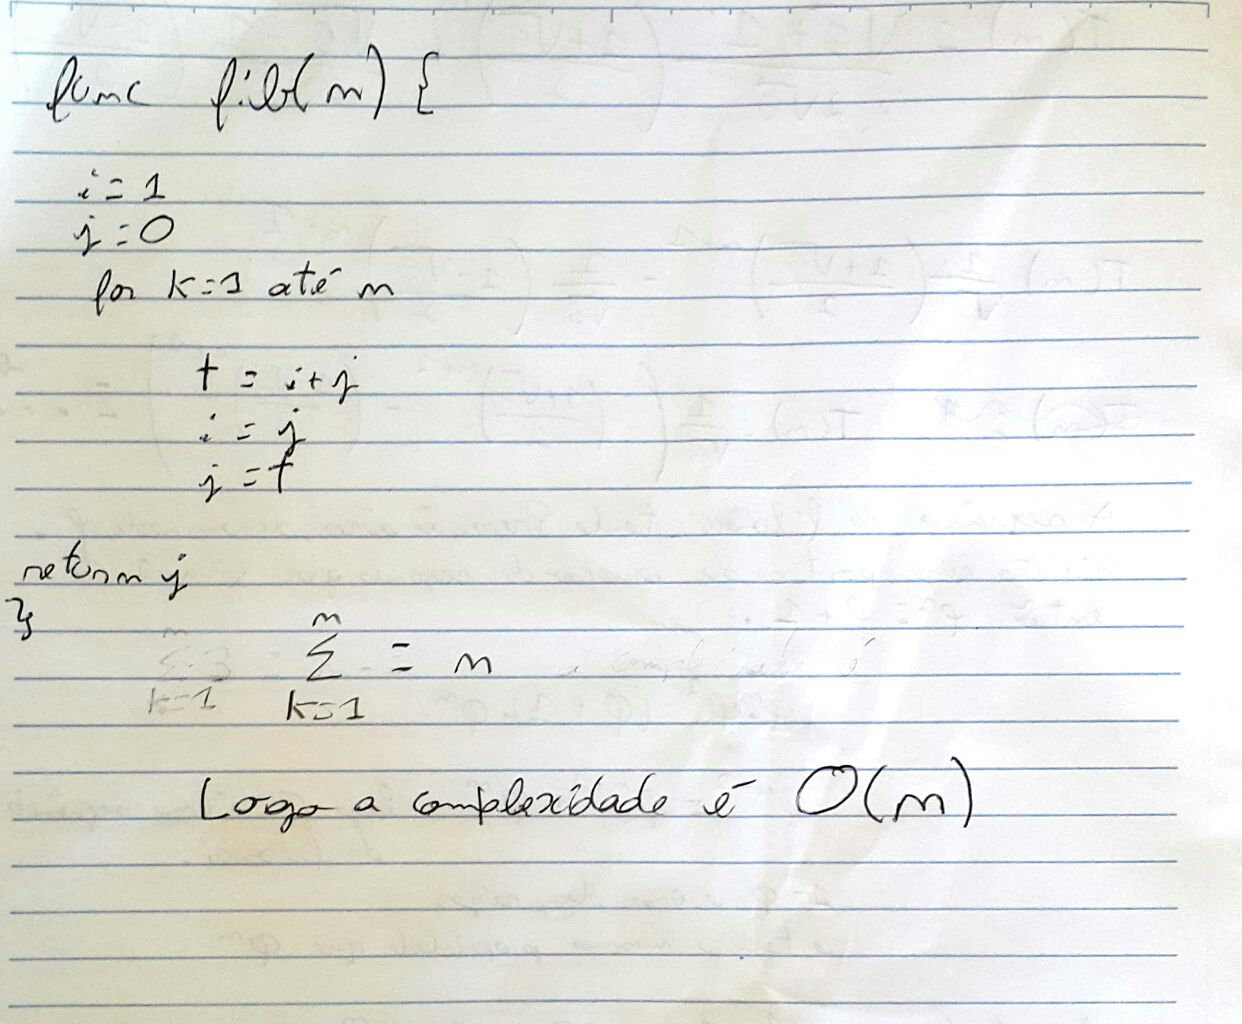 func fib(n) {
i = 1
j = 0
for k=1 até n
t = i+j
i = j
j = t
return j
}
n
∑ = n
k=1
Logo a complexidade é O(n)